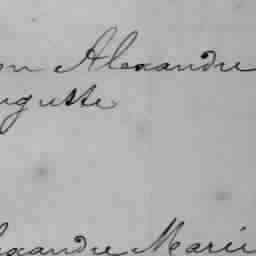 on Alexandre
uguste
lexandre Marie